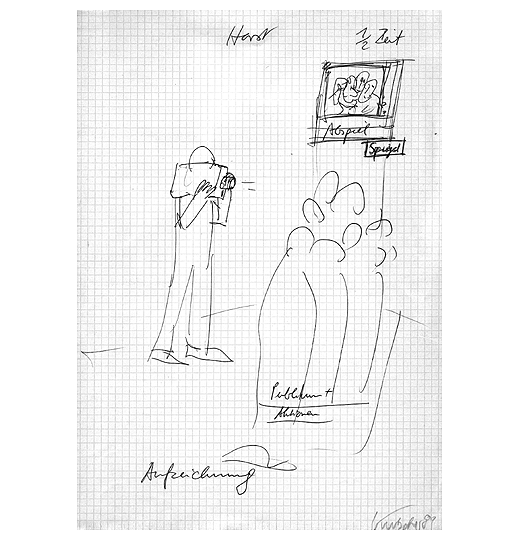 Horst
1/2 Zeit
Abspiel
Spiegel
Publikum +
Aktionen
Aufzeichnung